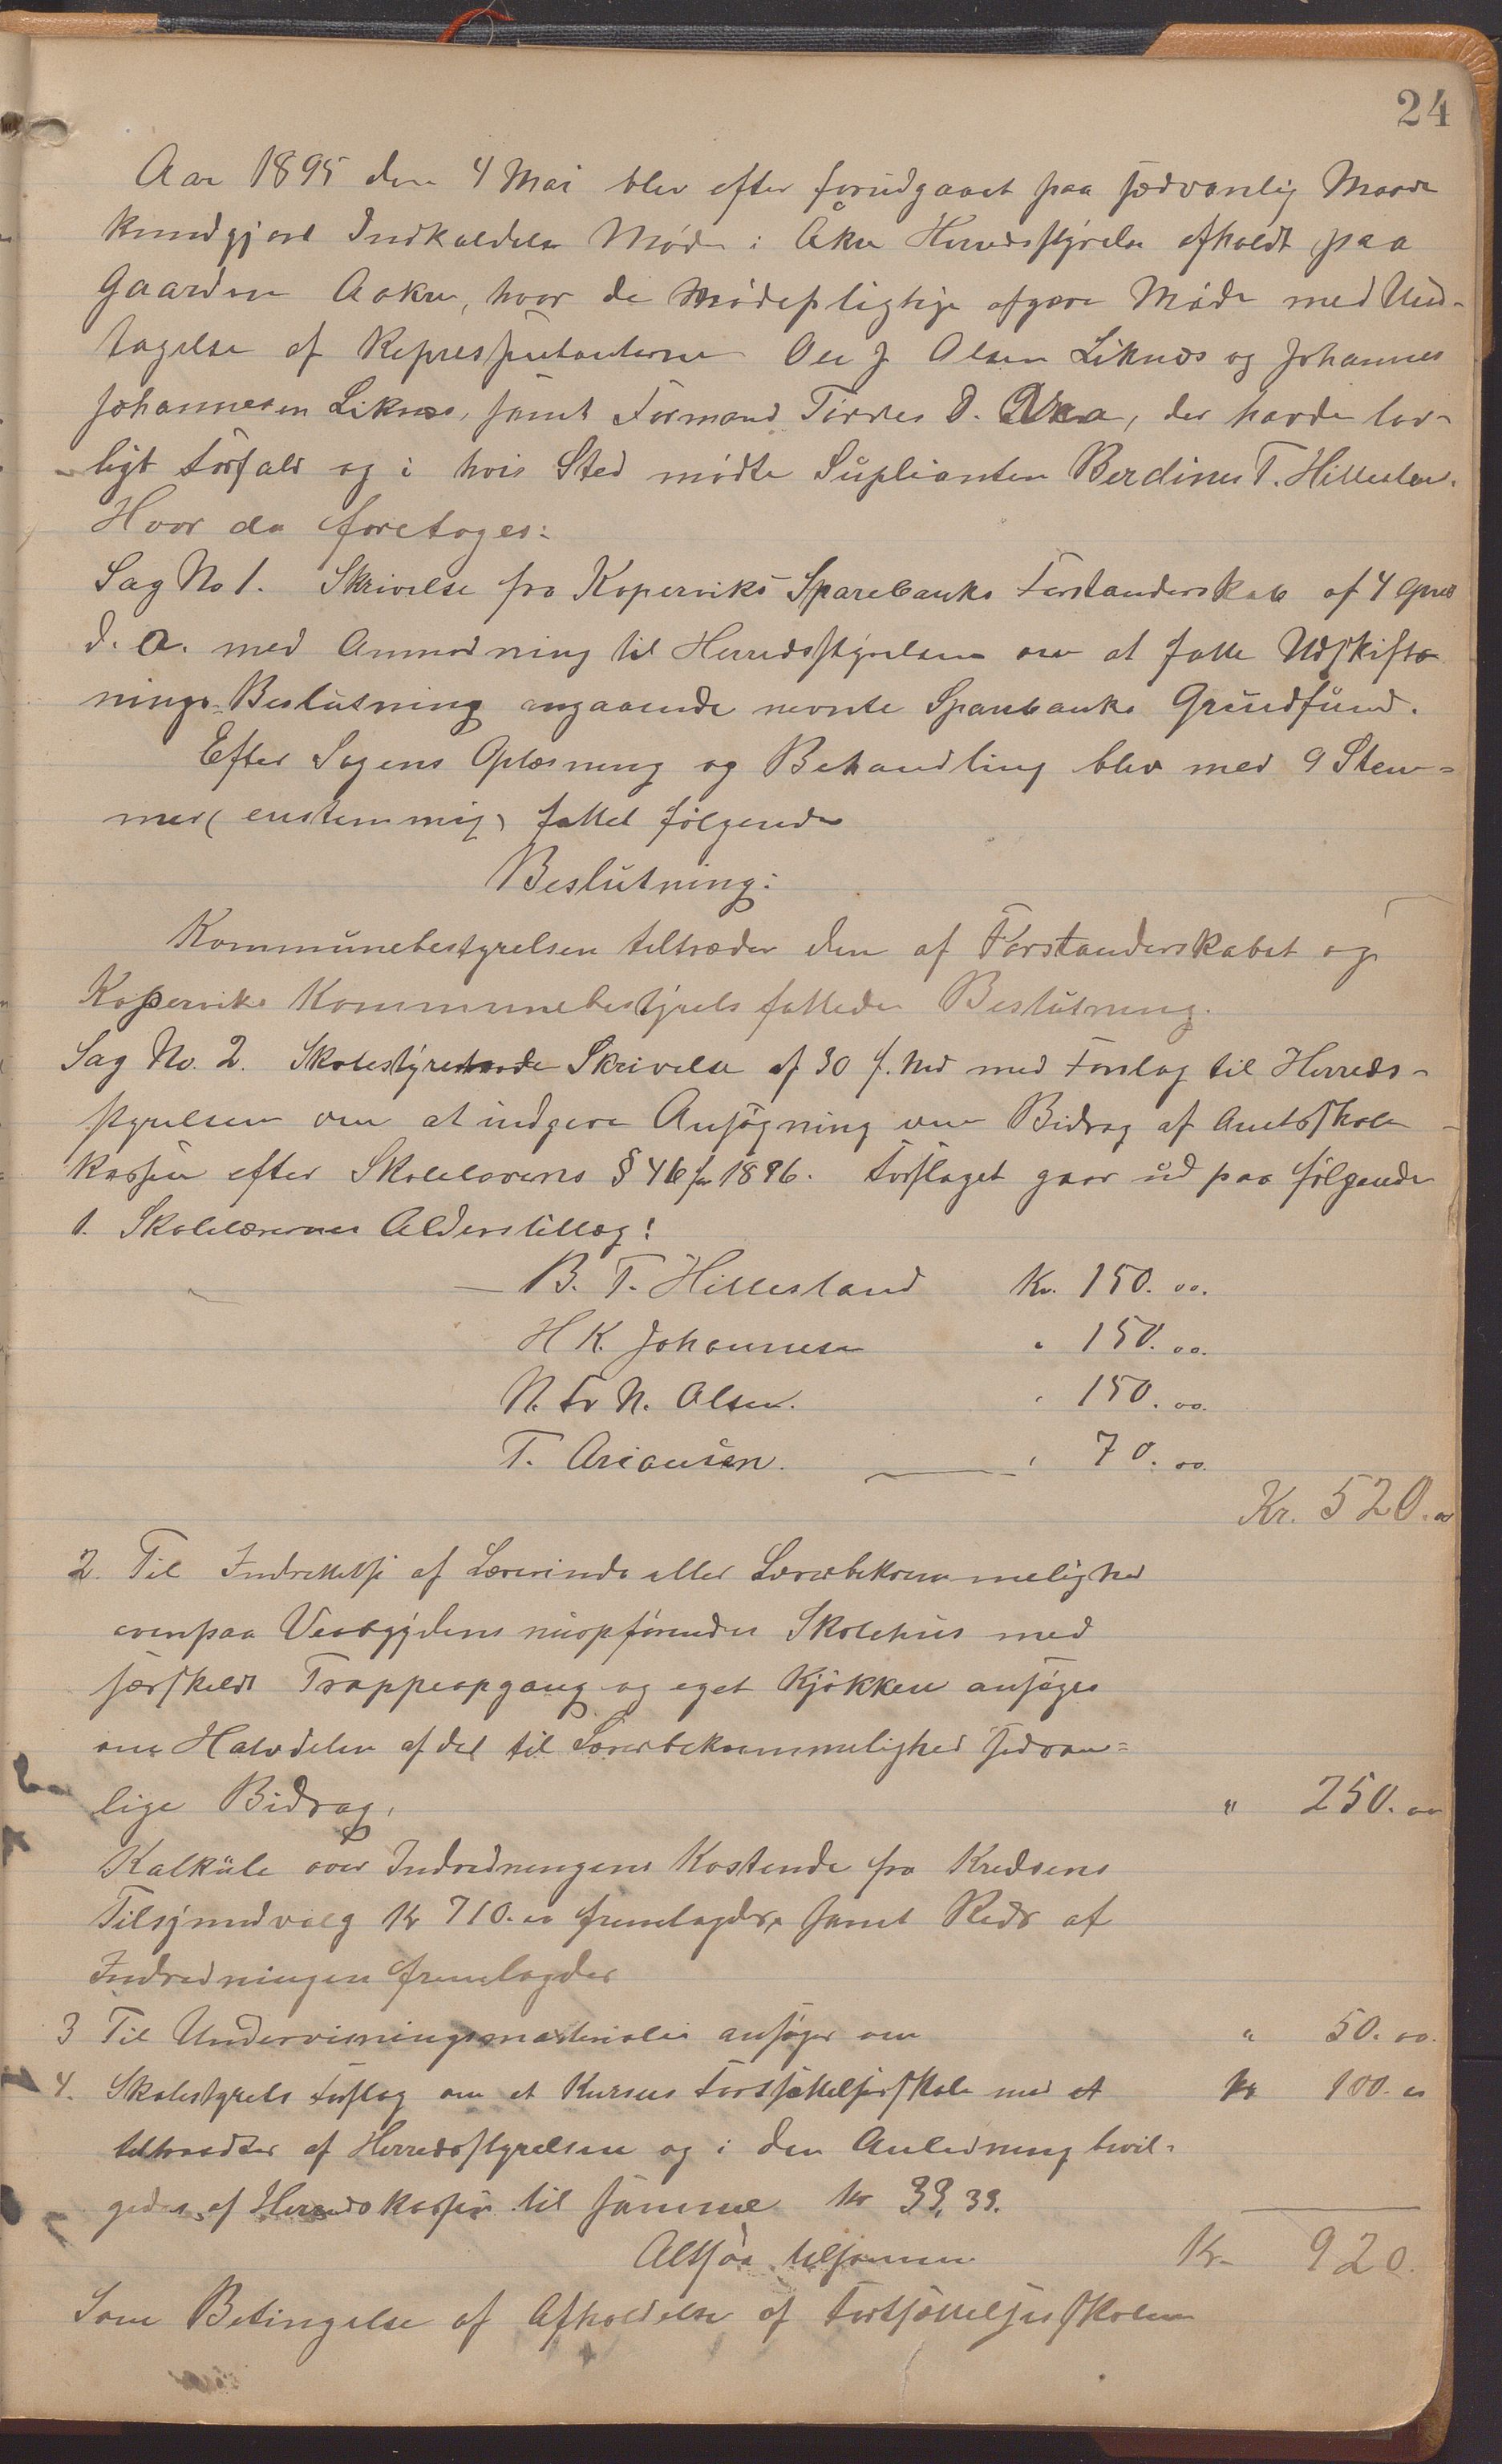 24
Aar 1895 den 4 Mai blev efter forudgaaet paa sædvanlig Maade
kundgjort Indkaldelse Møde i Åkre Herredsstyrelse afholdt paa
Gaarden Aakre, hvor de Mødepligtige afgave Møde med Und-
tagelse af Repræsentanterne Ole J Olsen Liknes og Johannes
Johannesen Liknes, samt Formand Tørres D. Vea, der havde lov-
ligt Forfald og i hvis Sted mødte Suplianten Berdines T. Hillesland.
Hvor da foretoges:
Sag No 1. Skrivelse fra Koperviks Sparebanks Forstanderskab af 4 April
d. a. med Anmodning til Herredsstyrelsen om at fatte Udskift-
nings-Beslutning angaaende nevnte Sparebanks Grundfund.
Efter Sagens Oplæsning og Behandling blev med 9 Stem-
mer (enstemmig) fattet følgende
Beslutning:
Kommunebestyrelsen tiltræder den af Forstanderskabet og
Koperviks Kommunebestyrels fattede Beslutning.
Sag No. 2. Skolestyrets Skrivelse af 30 f. Md med Forslag til Herreds-
styrelsen om at indgive Ansøgning om Bidrag af Amtsskole-
kassen efter Skolelovens § 46 for 1896. Forslaget gaar ud paa følgende
1. Skolelærernes Alderstillæg:
B. T. Hillesland Kr. 150. oo.
H K. Johannesen " 150. oo.
N. Fr N. Olsen. " 150. oo.
T. Ariansen. " 70. oo.
Kr. 520. oo
2. Til Indrettelse af Lærerinde eller Lærerbekvemmelighed
ovenpaa Veabygdens nyopførendes Skolehus med
særskildt Trappeopgang og eget Kjøkken ansøges
om Halvdelen af det til Lærerbekvemmelighed sedvan-
lige Bidrag, " 250. oo
Kalkule over Indredningens Kostende fra Kredsens
Tilsynudvalg Kr 710. oo fremlagdes samt Rids af
Indredningen fremlagdes
3 Til Undervisningsmaterialer ansøges om " 50. oo.
4. Skolestyrets Forslag om et Kursus Fortsættelsesskole med et Kr 100. oo
tiltraadtes af Herredsstyrelsen og i den Anledning bevil-
gedes af Herredskassen til samme Kr 33,33.
Altsaa tilsammen Kr 920.
Som Betingelse af Afholdelse af Fortsættelsesskolen